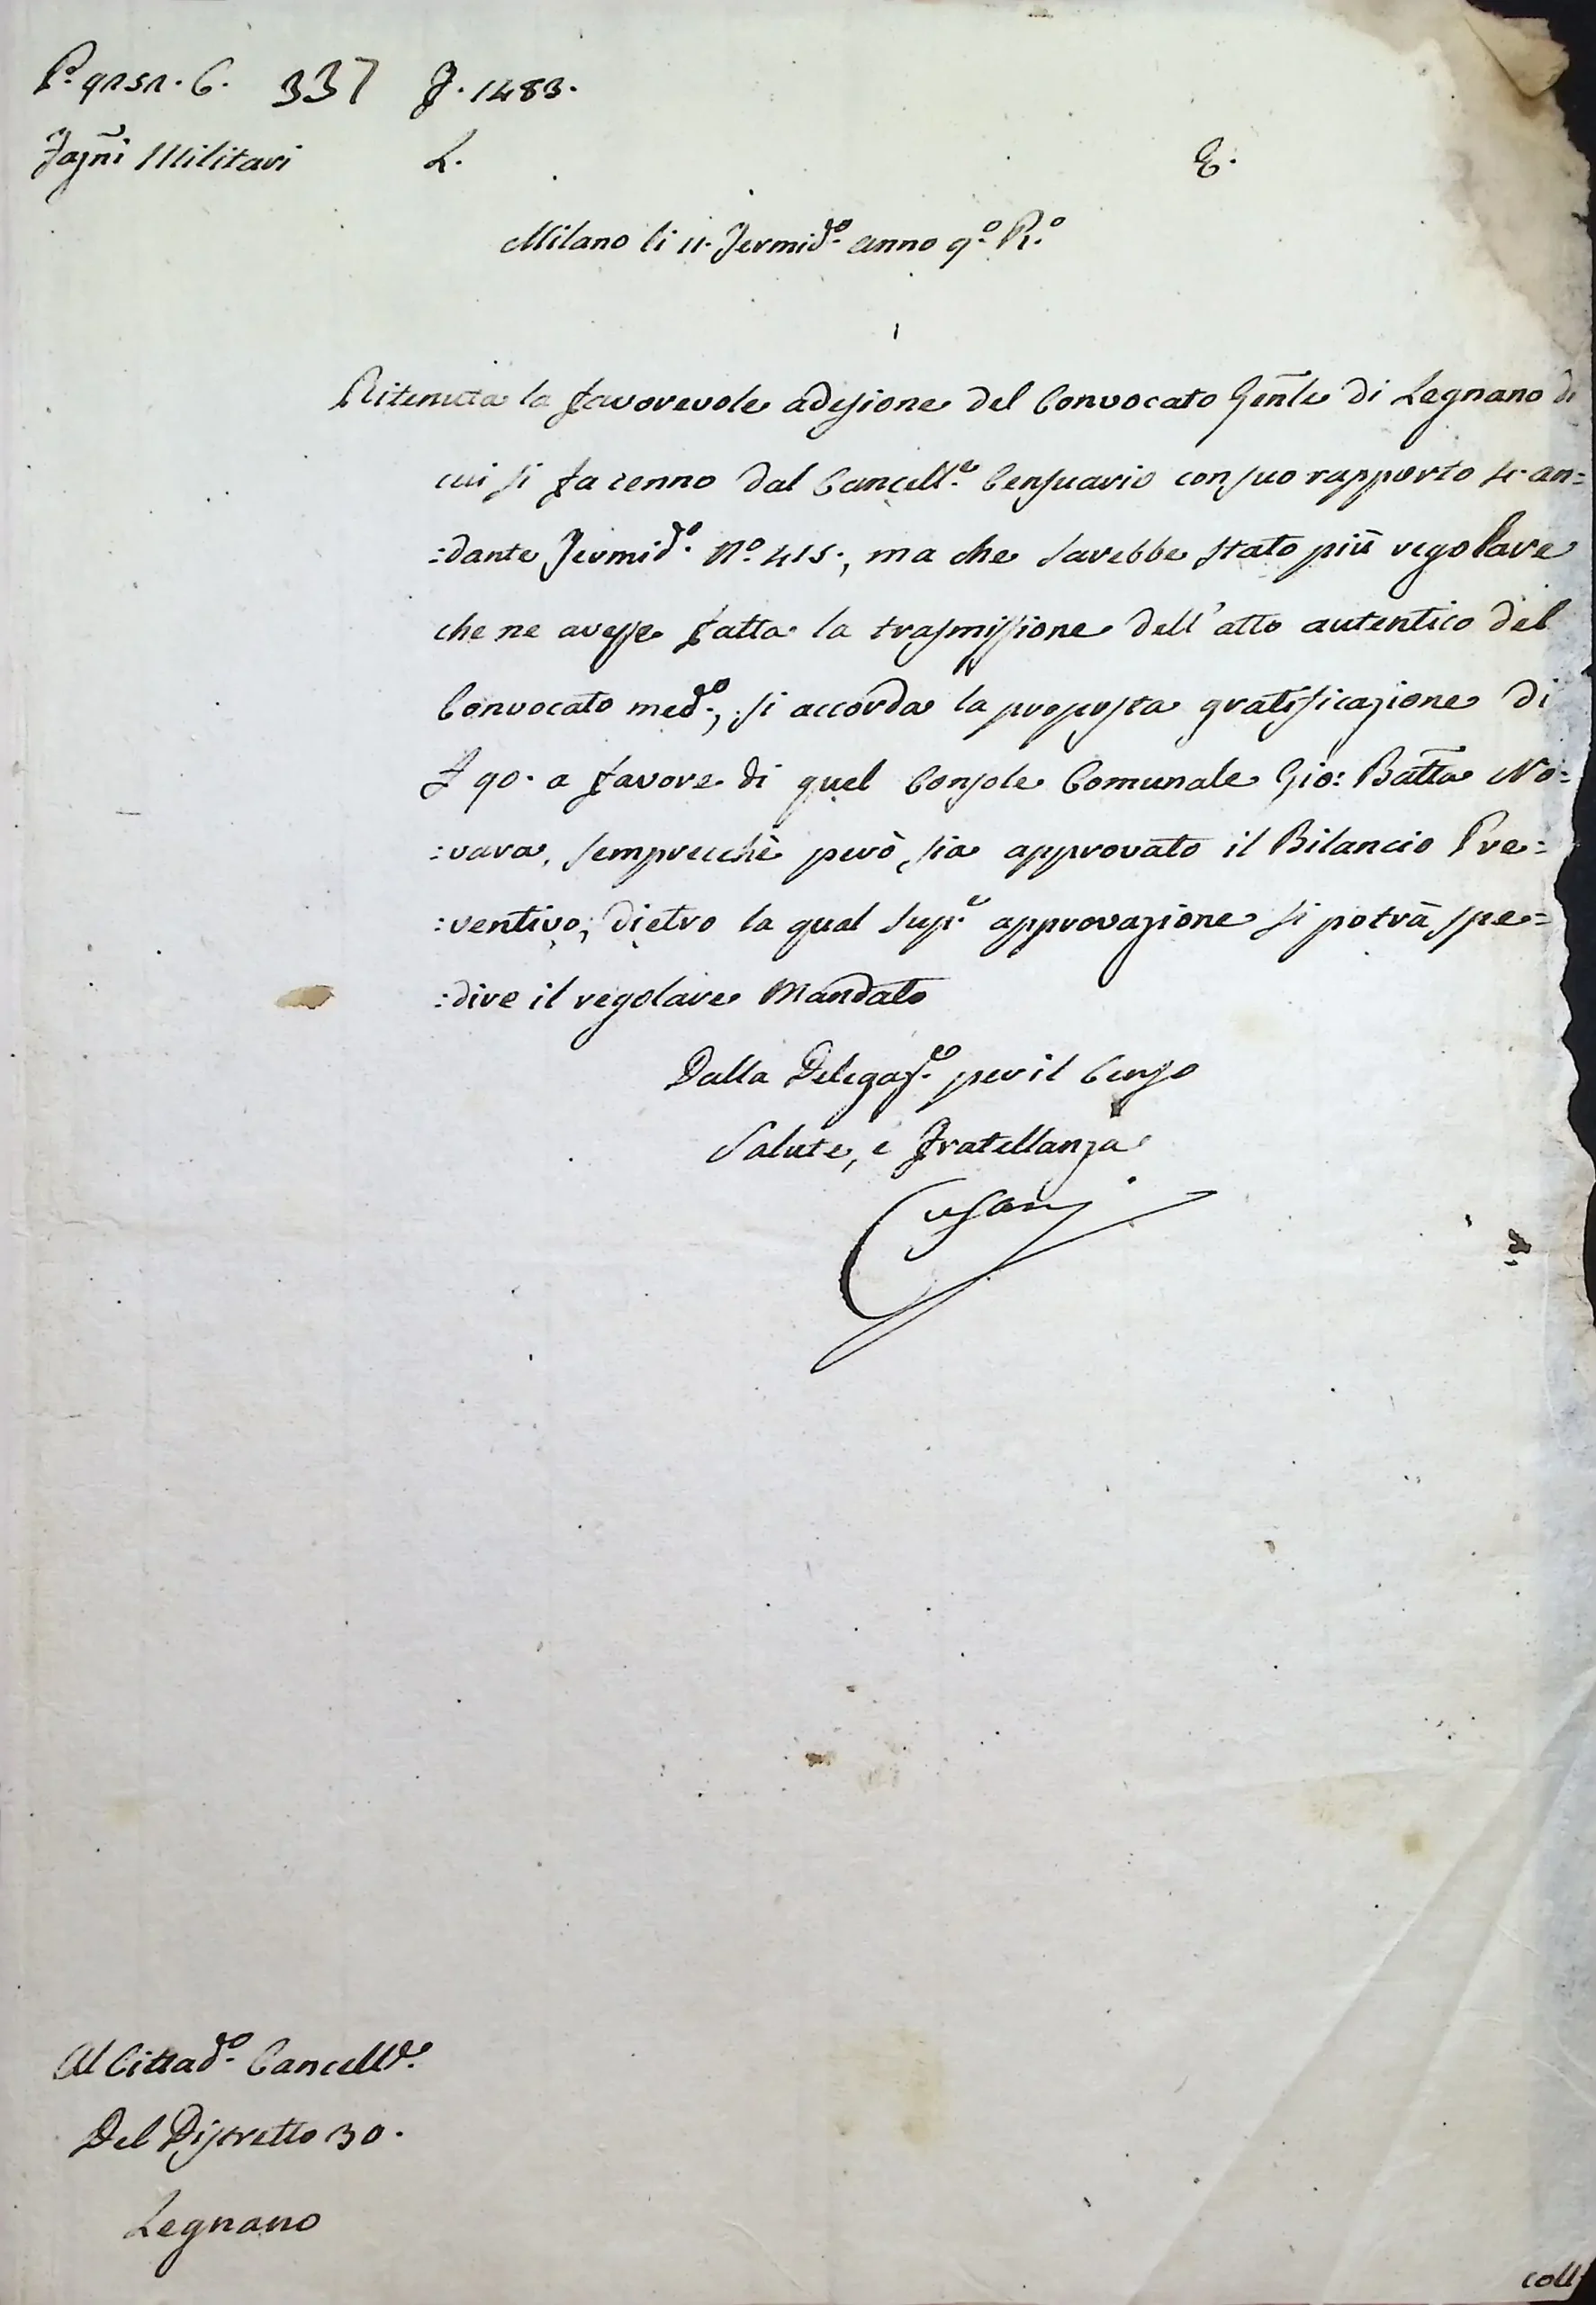 P.º 9252. 6. 337 F. 1483.
Fazñi Militari L. E.
Milano li 11. Termid.º anno 9.º R.º
Ritenuta la favorevole adesione del Convocato Gen̄le di Legnano di
cui si fa cenno dal Cancell.e Censuario con suo rapporto 4. an=
:dante Termid.º N.º 415., ma che sarebbe stato più regolare
che ne avesse fatta la trasmissione dell'atto autentico del
Convocato med.º, si accorda la proposta gratificazione di
£ 90. a favore di quel Console Comunale Gio: Batt̄a No=
:vara, semprecchè però sia approvato il Bilancio Pre=
:ventivo, dietro la qual sup.e approvazione si potrà spe=
:dire il regolare Mandato
Dalla Delegaz.e per il Censo
Salute, e Fratellanza
Cusani
Al Cittad.º Cancell.e
Del Distretto 30.
Legnano